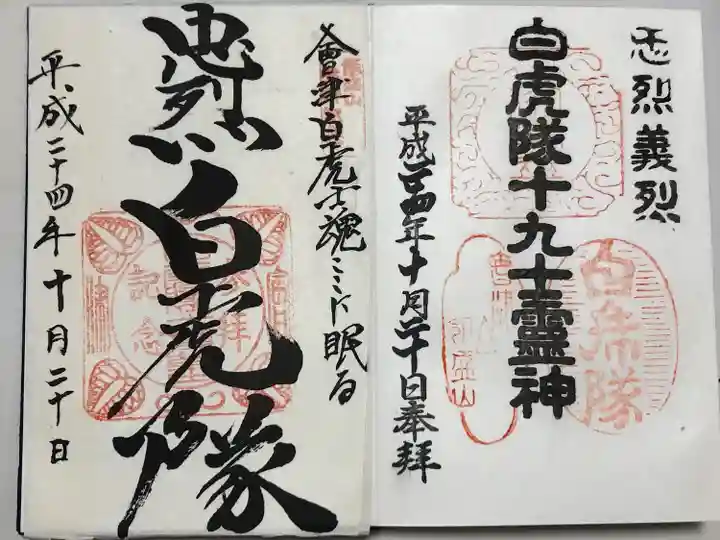 忠烈義烈
白虎隊十九士霊神
平成廿四年十月二十日奉拝
白虎隊
飯盛山
會津白虎士魂ここに眠る
忠烈
白虎隊
平成二十四年十月二十日
奉拝
記念